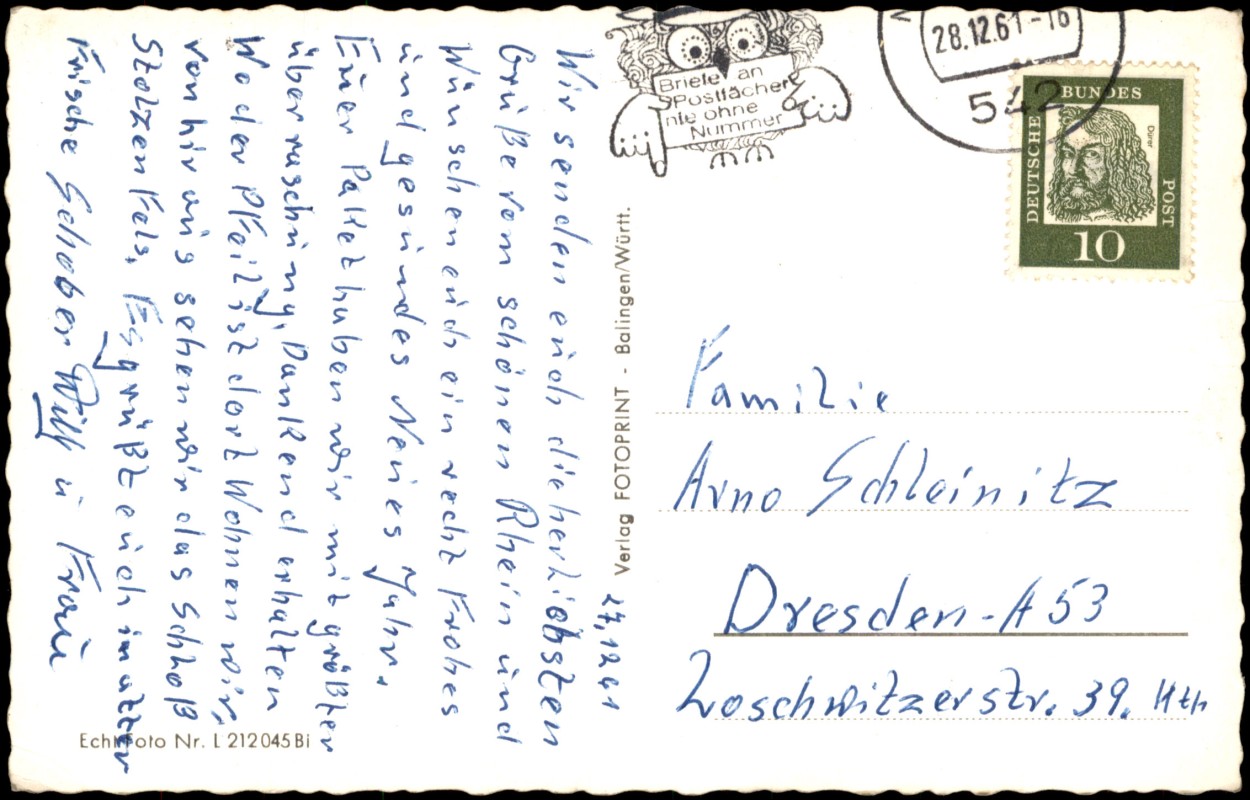 27.12.61
Wir senden euch die herzlichsten
Grüße vom schönen Rhein und
Wünschen euch ein recht Frohes
und gesundes Neues Jahr.
Euer Paket haben wir mit größter
überraschung, Dankend erhalten
Wo der Pfeil ist dort Wohnen wir,
von hir aus sehen wir das Schloß
Stolzenfels. Es grüßt euch in alter
Frische Schober Willy u Frau
Echt Foto Nr. L 212045 Bi
Verlag FOTOPRINT - Balingen/Württ.
Briefe an
Postfächer
nie ohne
Nummer
28.12.61-16
542
DEUTSCHE BUNDES POST
Dürer
10
Familie
Arno Schleinitz
Dresden-A 53
Loschwitzerstr. 39. Hth